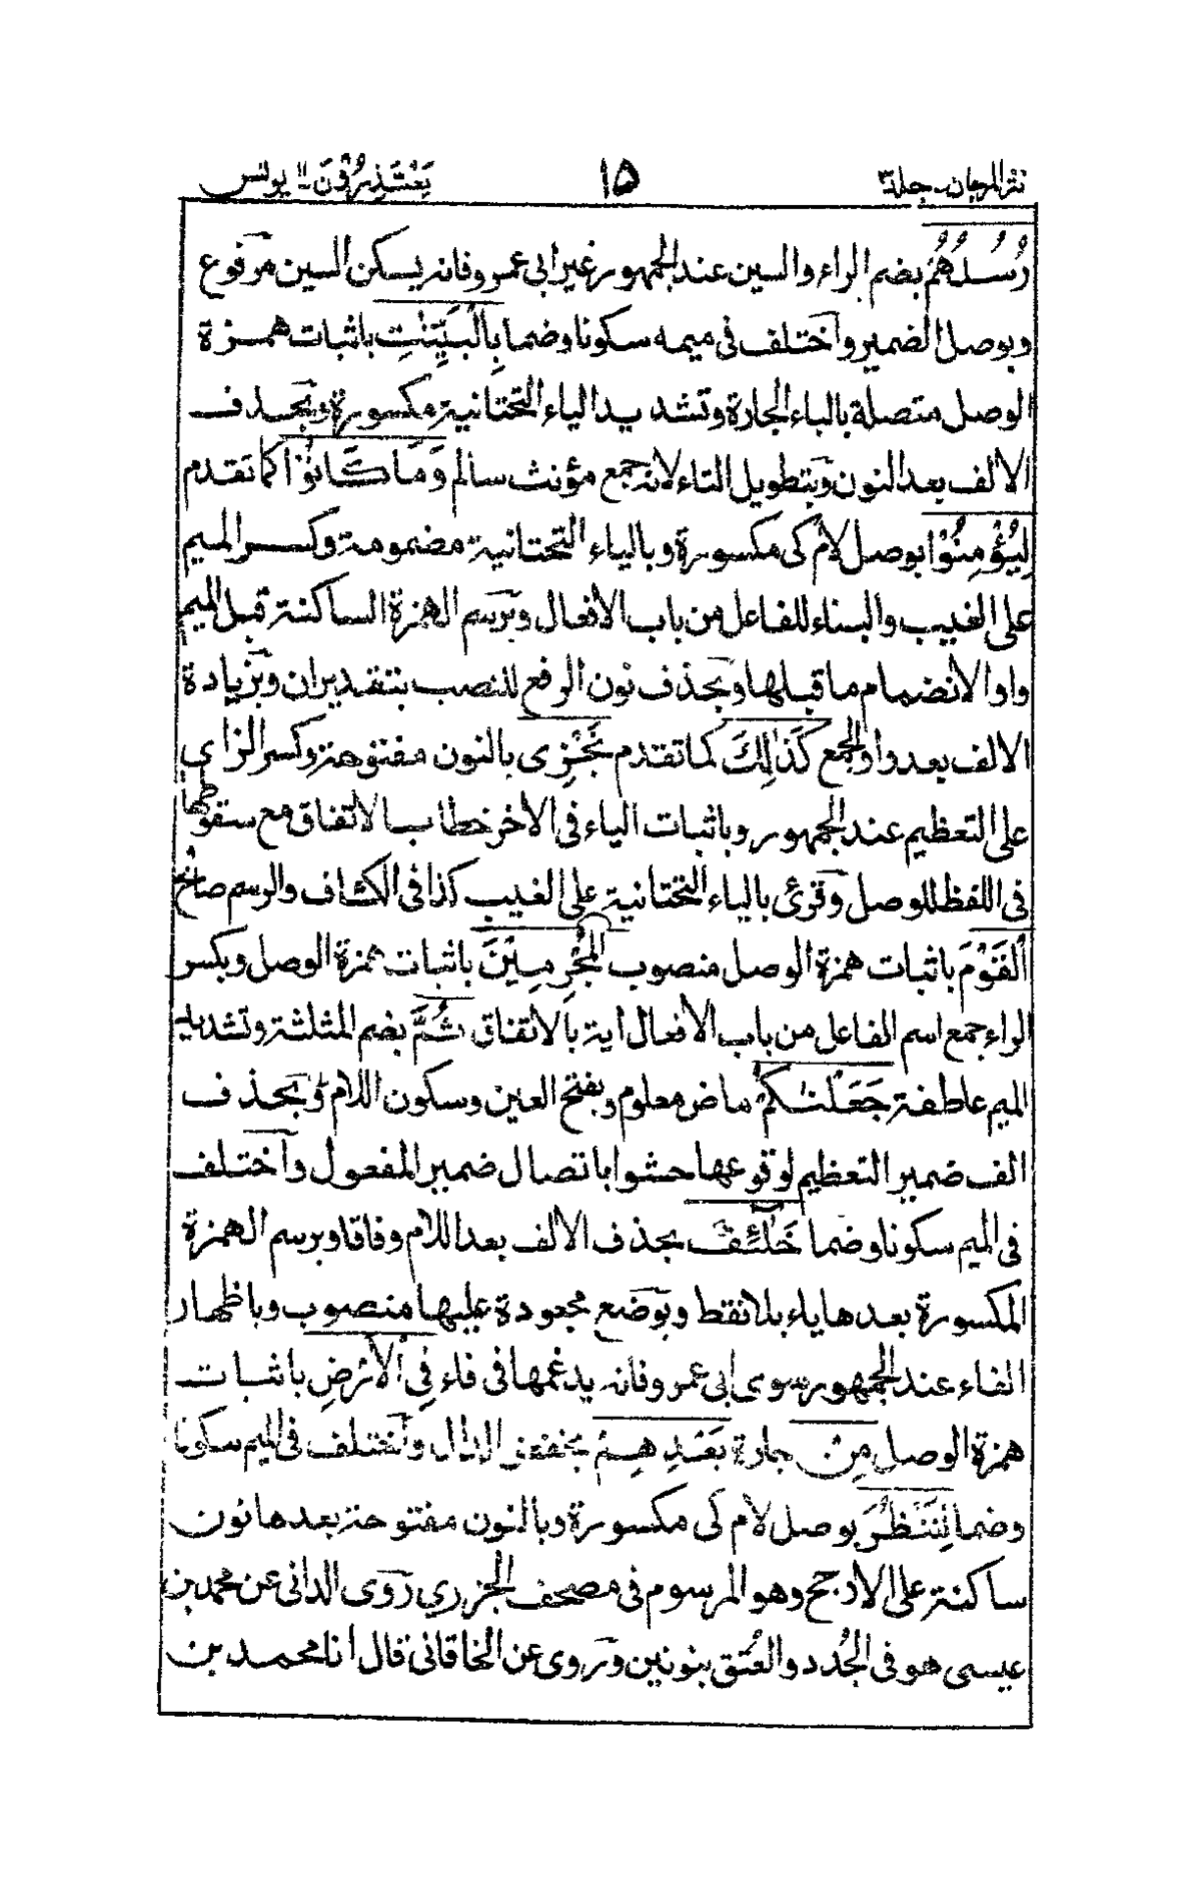 نثر المرجان۔جلد۳ ۱۵ يَعْتَذِرُوْنَ۔۱۱ يونس
رُسُلُهُمْ بضم الراء والسين عند الجمهور غير ابى عمرو فانه يسكن السين مرفوع
وبوصل الضمير واختلف فى ميمه سكونا وضما بِالْبَيِّنٰتِ باثبات همزة
الوصل متصلة بالباء الجارة وتشديد الياء التحتانية مكسورة وبحذف
الالف بعد النون وبتطويل التاء لانه جمع مؤنث سالم وَمَا كَانُوْا كما تقدم
لِيُؤْمِنُوْا بوصل لام كى مكسورة وبالياء التحتانية مضمومة وكسر الميم
على الغيب والبناء للفاعل من باب الافعال وبرسم الهمزة الساكنة قبل الميم
واوا لانضمام ما قبلها وبحذف نون الرفع للنصب بتقدير ان وبزيادة
الالف بعد واو الجمع كَذٰلِكَ كما تقدم نَجْزِى بالنون مفتوحة وكسر الزاى
على التعظيم عند الجمهور وباثبات الياء فى الاخر خطا بالاتفاق مع سقوطها
فى اللفظ للوصل وقرئ بالياء التحتانية على الغيب كذا فى الكشاف والرسم صالح
الْقَوْمَ باثبات همزة الوصل منصوب الْمُجْرِمِيْنَ باثبات همزة الوصل وبكسر
الراء جمع اسم الفاعل من باب الافعال اية بالاتفاق ثُمَّ بضم المثلثة وتشديد
الميم عاطفة جَعَلْنٰكُمْ ماض معلوم وبفتح العين وسكون اللام وبحذف
الف ضمير التعظيم لوقوعها حشوا باتصال ضمير المفعول واختلف
فى الميم سكونا وضما خَلٰٓئِفَ بحذف الالف بعد اللام وفاقا وبرسم الهمزة
المكسورة بعدها ياء بلا نقط وبوضع مجعودة عليها منصوب وباظهار
الفاء عند الجمهور سوى ابى عمرو فانه يدغمها فى فاء فِى الْاَرْضِ باثبات
همزة الوصل مِنْ جارة بَعْدِهِمْ بخفض الدال واختلف فى الميم سكونا
وضما لِنَنْظُرَ بوصل لام كى مكسورة وبالنون مفتوحة بعدها نون
ساكنة على الارجح وهو المرسوم فى مصحف الجزرى روى الدانى عن محمد بن
عيسى هو فى الجُدد والعُتق بنونين وروى عن الخاقانى قال انا محمد بن